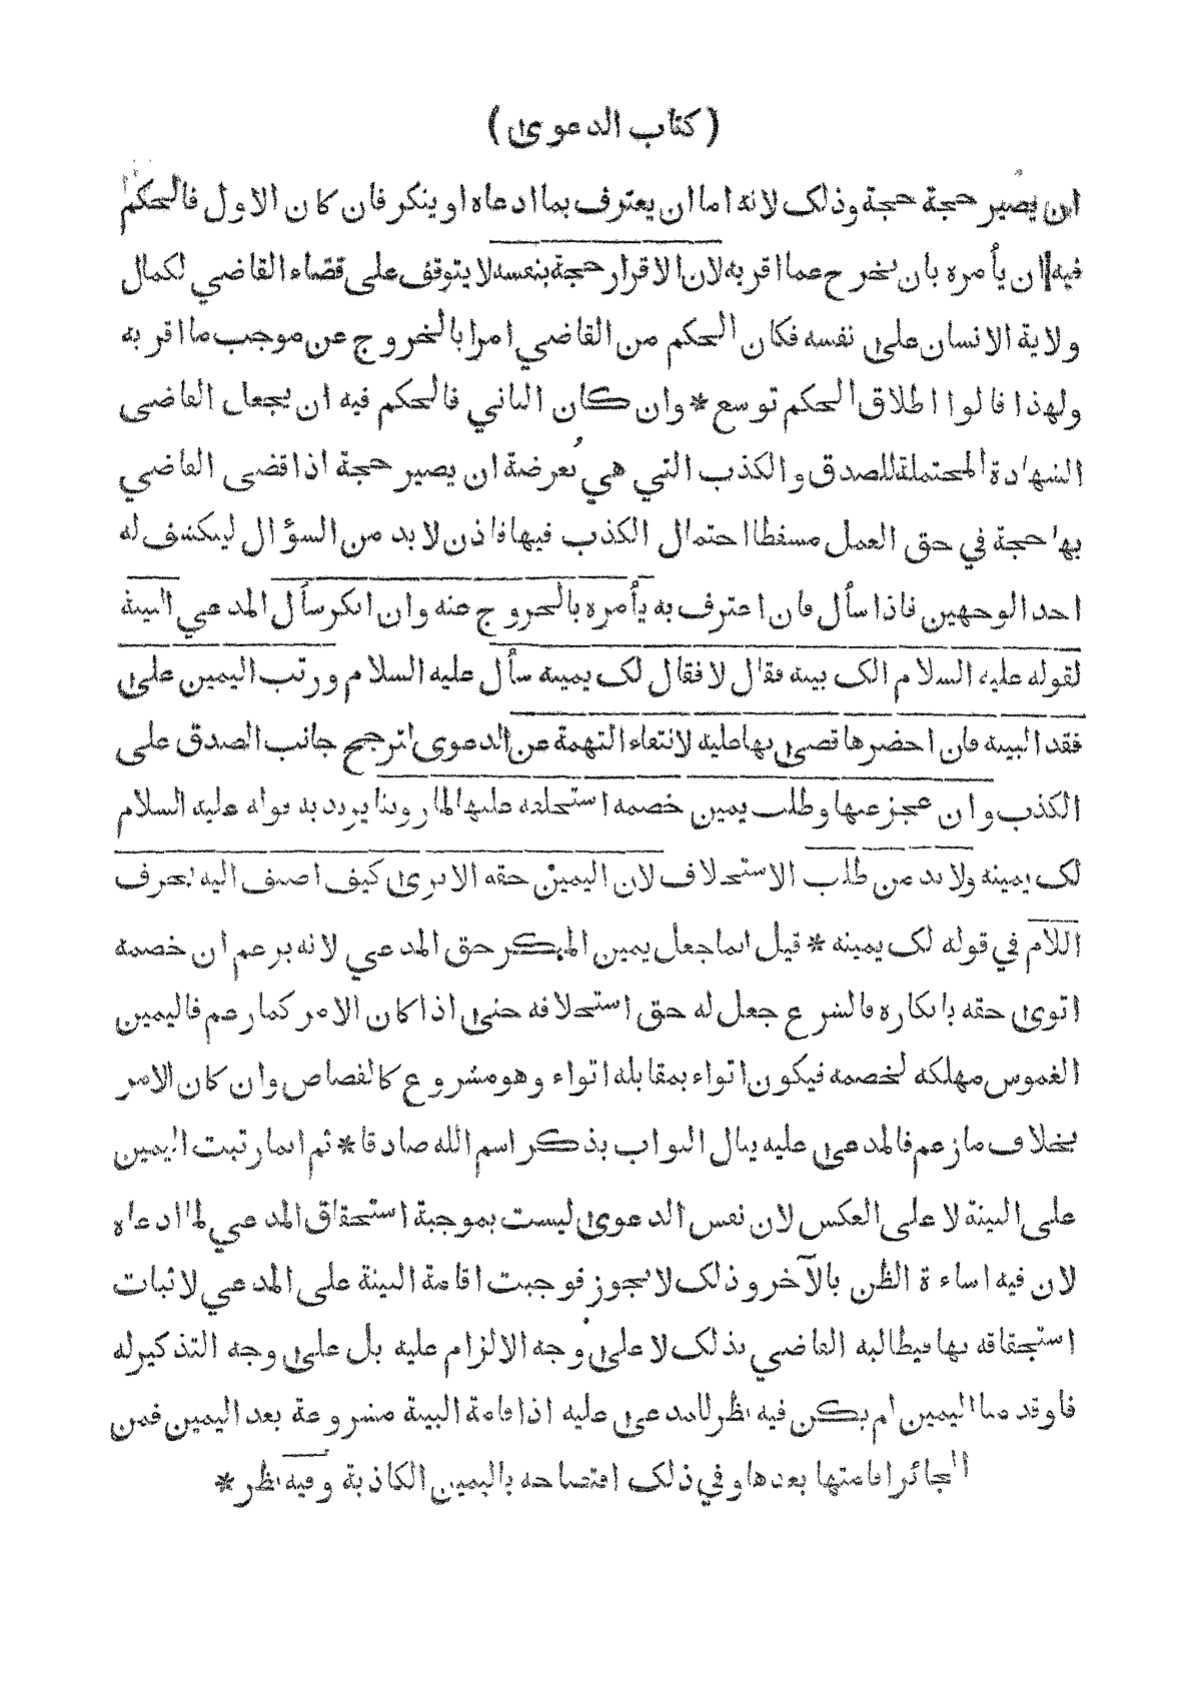 (كتاب الدعوى)
ان يصير حجة حجة وذلك لانه اما ان يعترف بما ادعاه او ينكر فان كان الاول فالحكم
فيه ان يأمره بان يخرج عما اقر به لان الاقرار حجة بنفسه لا يتوقف على قضاء القاضي لكمال
ولاية الانسان على نفسه فكان الحكم من القاضي امرا بالخروج عن موجب ما اقر به
ولهذا قالوا اطلاق الحكم توسع * وان كان الثاني فالحكم فيه ان يجعل القاضى
الشهادة المحتملة للصدق والكذب التي هي بعرضة ان يصير حجة اذا قضى القاضي
بها حجة في حق العمل مسقطا احتمال الكذب فيها فاذن لا بد من السؤال لينكشف له
احد الوجهين فاذا سأل فان اعترف به يأمره بالخروج عنه وان انكر سأل المدعي البينة
لقوله عليه السلام الك بينة فقال لا فقال لك يمينه سأل عليه السلام ورتب اليمين على
فقد البينة فان احضرها قضى بها عليه لانتفاء التهمة عن الدعوى لترجيح جانب الصدق على
الكذب وان عجز عنها وطلب يمين خصمه استحلفه عليها لما روينا يريد به قوله عليه السلام
لك يمينه ولا بد من طلب الاستحلاف لان اليمين حقه الا يرى كيف اضيف اليه بحرف
اللام في قوله لك يمينه * قيل انما جعل يمين المنكر حق المدعي لانه يزعم ان خصمه
اتوى حقه بانكاره فالشرع جعل له حق استحلافه حتى اذا كان الامر كما زعم فاليمين
الغموس مهلكة لخصمه فيكون اتواء بمقابلة اتواء وهو مشروع كالقصاص وان كان الامر
بخلاف ما زعم فالمدعى عليه ينال الثواب بذكر اسم الله صادقا * ثم انما رتبت اليمين
على البينة لا على العكس لان نفس الدعوى ليست بموجبة استحقاق المدعي لما ادعاه
لان فيه اساءة الظن بالآخر وذلك لا يجوز فوجبت اقامة البينة على المدعي لاثبات
استحقاقه بها فيطالبه القاضي بذلك لا على وجه الالزام عليه بل على وجه التذكير له
فلو قدمنا اليمين لم يكن فيه نظر للمدعى عليه اذ اقامة البينة مشروعة بعد اليمين فمن
الجائز اقامتها بعدها وفي ذلك افتضاحه باليمين الكاذبة وفيه نظر *